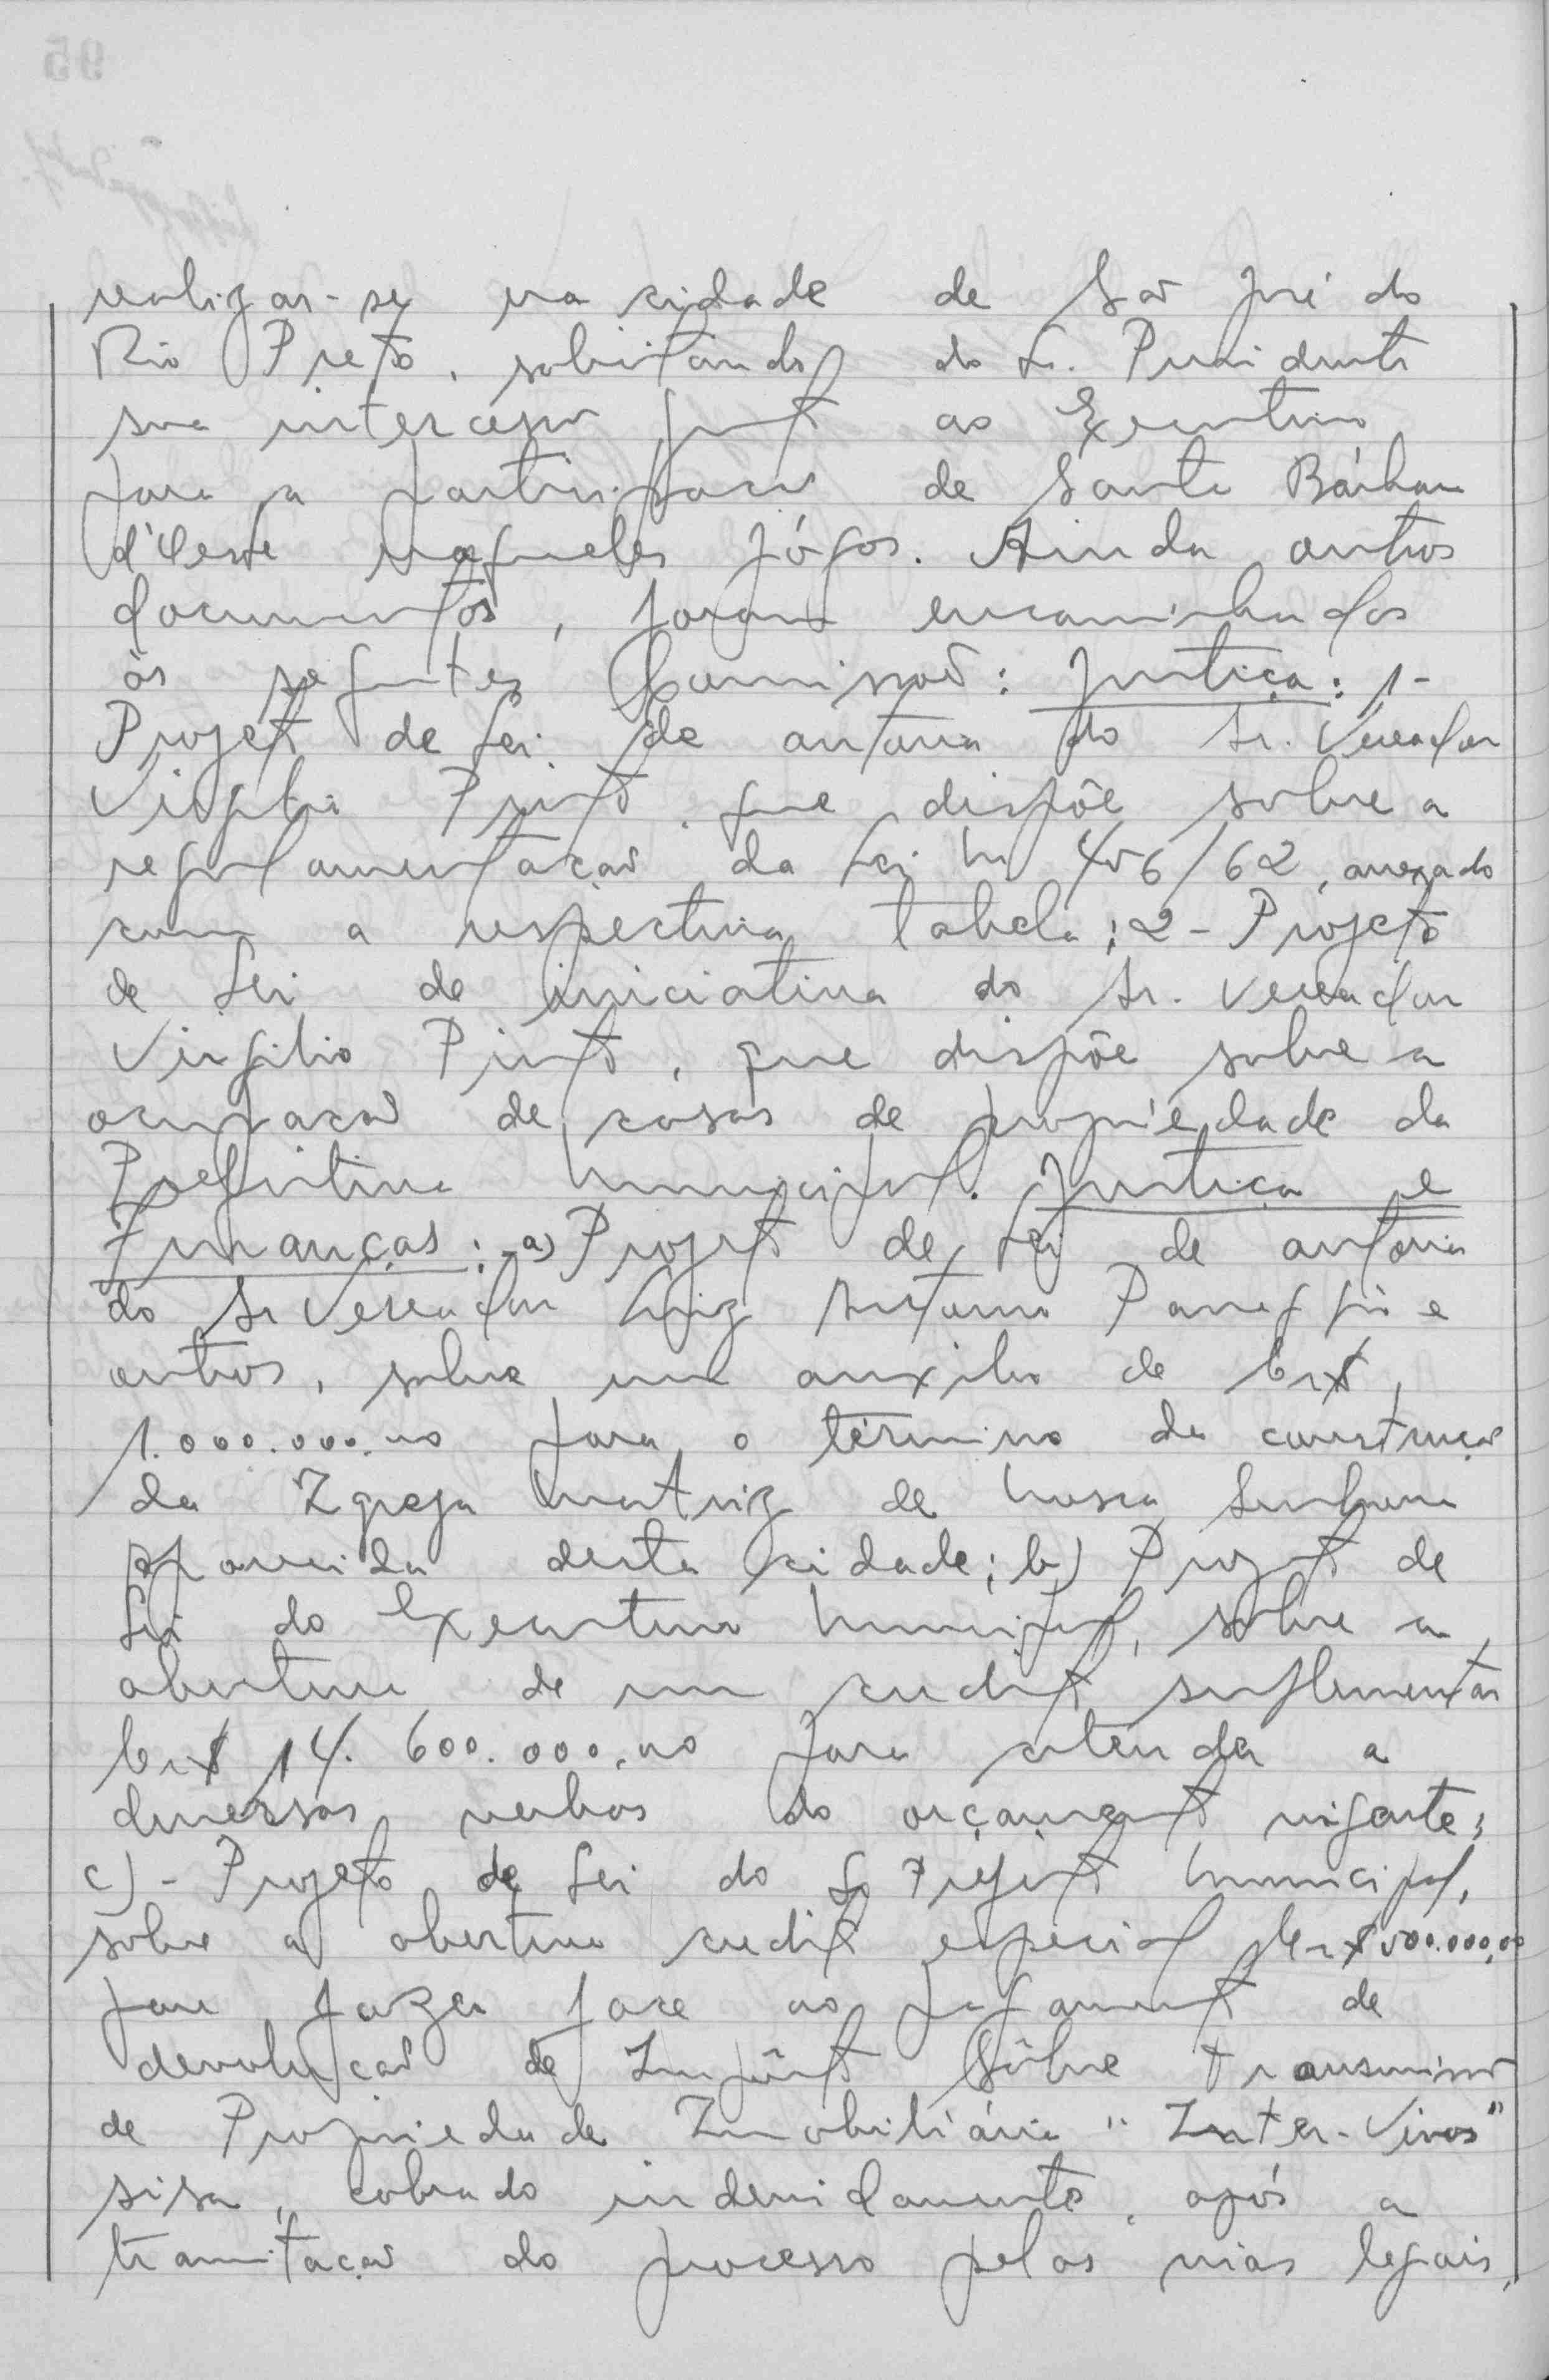 realizar-se na cidade de São José do
Rio Preto, solicitando do Sr. Presidente
sua intercessão junto ao Executivo
para a participação de Santa Bárbara
d'Oeste naqueles jógos. Ainda outros
documentos, foram encaminhados
às seguintes Comissões: Justiça: 1-
Projeto de Lei de autoria do Sr. Vereador
Virgilio Pinto, que dispõe sobre a
regulamentação da Lei nº 456/62, anexado
com a respectiva tabela; 2- Projeto
de Lei de iniciativa do Sr. Vereador
Virgilio Pinto, que dispõe sobre a
ocupação de casas de propriedade da
Prefeitura Municipal. Justiça e
Finanças: a) Projeto de Lei de autoria
do Sr Vereador Luiz Antonio Panaggio e
outros, sobre um auxilio de Cr$
1.000.000,00 para o término da construção
da Igreja Matriz de Nossa Senhora
Aparecida desta cidade; b) Projeto de
Lei do Executivo Municipal, sobre a
abertura de um credito suplementar
Cr$ 14.600.000,00 para atender a
diversas verbas do orçamento vigente;
c)- Projeto de Lei do Sr Prefeito Municipal,
sobre a abertura credito especial Cr$ 500.000,00
para fazer face ao pagamento de
devolução de Impôsto Sôbre transmissão
de Propriedade Imobiliária "Inter-Vivos"
sisa, cobrado indevidamente, após a
tramitação do processo pelas vias legais,